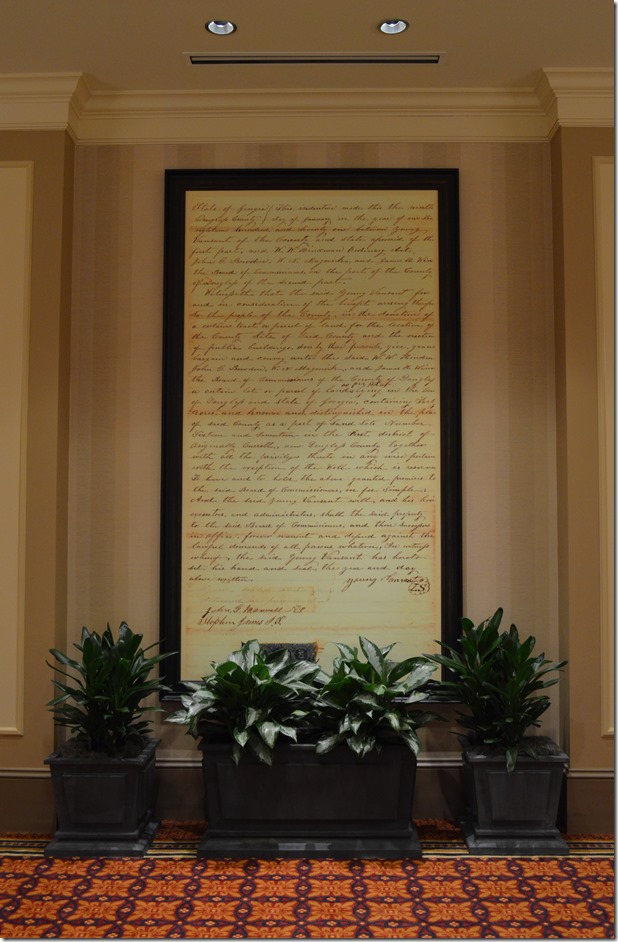 State of Georgia / This indenture made this the ninth
Douglas County / day of January in the year of
eighteen hundred and seventy one between Young
Vansant of the County and State aforesaid of the
first part, and W. W. Hindman Ordinary
John C. Bowden, W. N. Magouirk, and James H. Winn
the Board of Commissioners, on the part of the County
of Douglas of the second part.
Witnesseth that the said Young Vansant for
and in consideration of the benefit arising
to the people of the County, in the
a certain tract or parcel of land, for the location of
the County Site of said County and the erection
of public buildings, give, grant
bargain and convey unto the said W. W. Hindman
John C. Bowden, W. N. Magouirk, and James H. Winn
the Board of Commissioners of the County of Douglas
a certain lot or parcel of land lying in the
of Douglas and State of Georgia, containing Forty
Acres, and known and distinguished in the plan
of said County as a part of Land Lots Number
Sixteen and Seventeen in the First district of
Originally Carroll, now Douglas County together
with all the privileges thereto in any wise
with the exception of the Well which is
To have and to hold the above granted premises to
the said Board of Commissioners, in fee Simple.
And the said Young Vansant will, and his heirs
executors, and administrators, shall the said property
to the said Board of Commissioners, and their Successors
in office, forever warrant and defend against the
lawful demands of all persons whatever, In witness
whereof, the said Young Vansant has hereto
set his hand and seal the year and day
above written. Young Vansant LS
John G. Maxwell
Stephen James J.P.